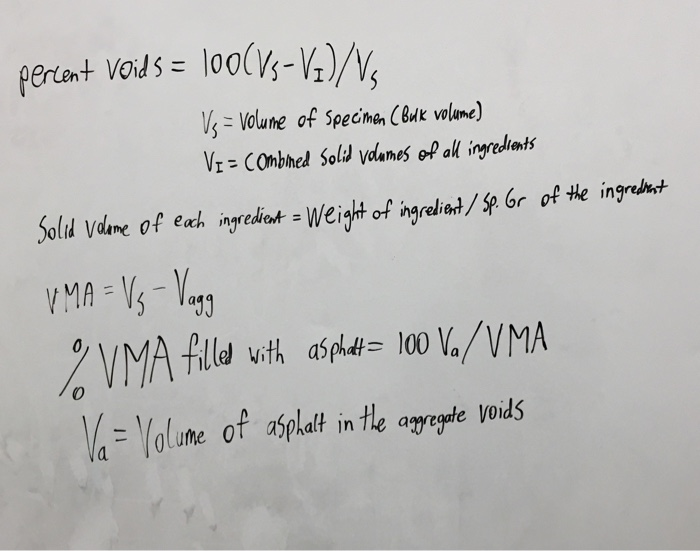 percent voids = 100(Vs-VI)/Vs
Vs = Volume of Specimen (Bulk volume)
VI = Combined Solid volumes of all ingredients
Solid Volume of each ingredient = Weight of ingredient / Sp. Gr of the ingredient
VMA = Vs - Vagg
% VMA filled with asphalt = 100 Va/VMA
Va = Volume of asphalt in the aggregate voids